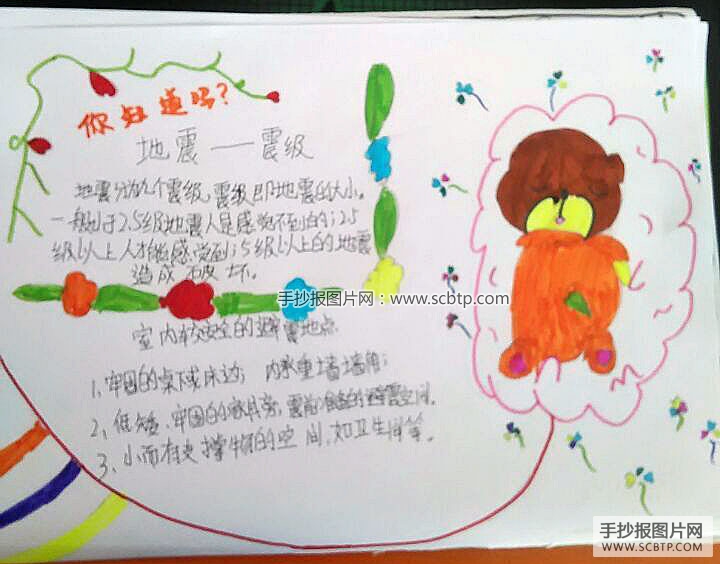 你知道吗？
地震——震级
地震分为九个震级，震级即地震的大小。
一般小于2.5级地震人是感觉不到的；2.5
级以上人才能感觉到；5级以上的地震
造成破坏。
手抄报图片网：www.scbtp.com
室内较安全的避震地点
1、牢固的桌下或床边； 内承重墙墙角；
2、低矮、牢固的家具旁，震前准备的避震空间。
3、小而有支撑物的空间，如卫生间等。
手抄报图片网
WWW.SCBTP.COM